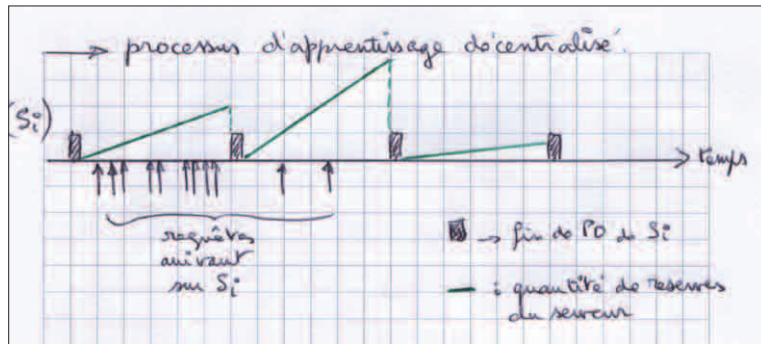 processus d'apprentissage décentralisé.
(Si)
temps
requêtes
arrivant
sur Si
→ fin de PD de Si
: quantité de reserves
du serveur